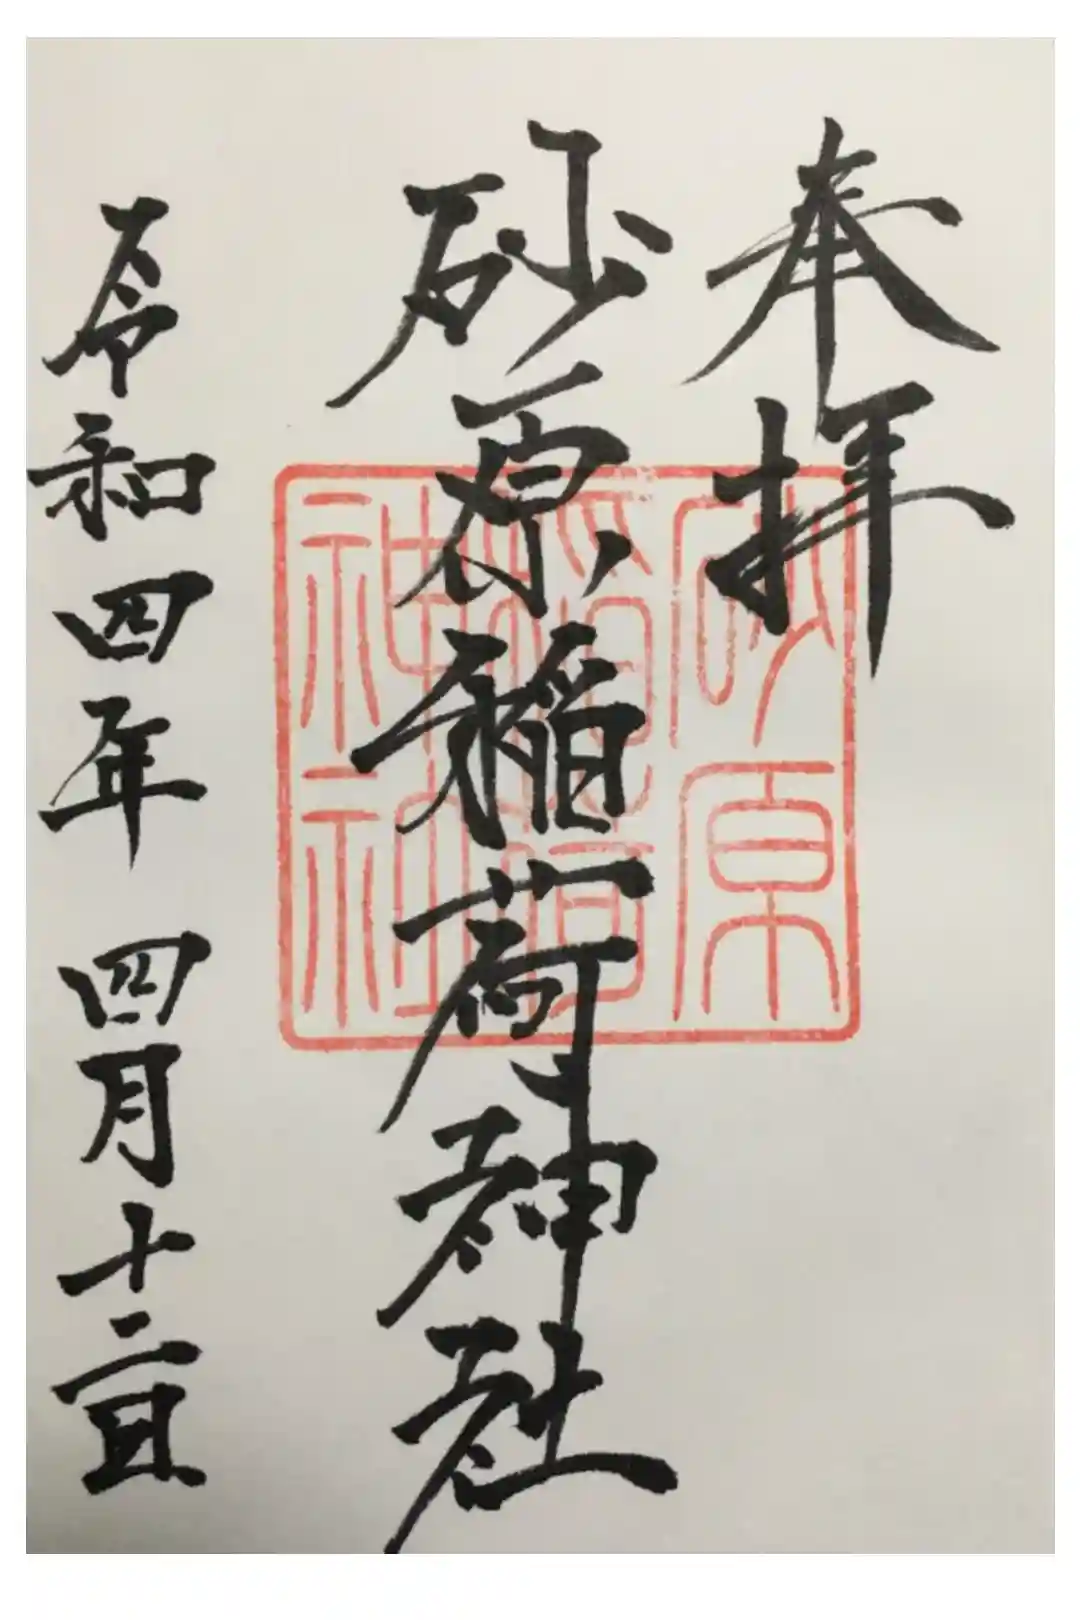 奉拝
砂原稲荷神社
砂原
稲荷
神社
令和四年 四月十二日